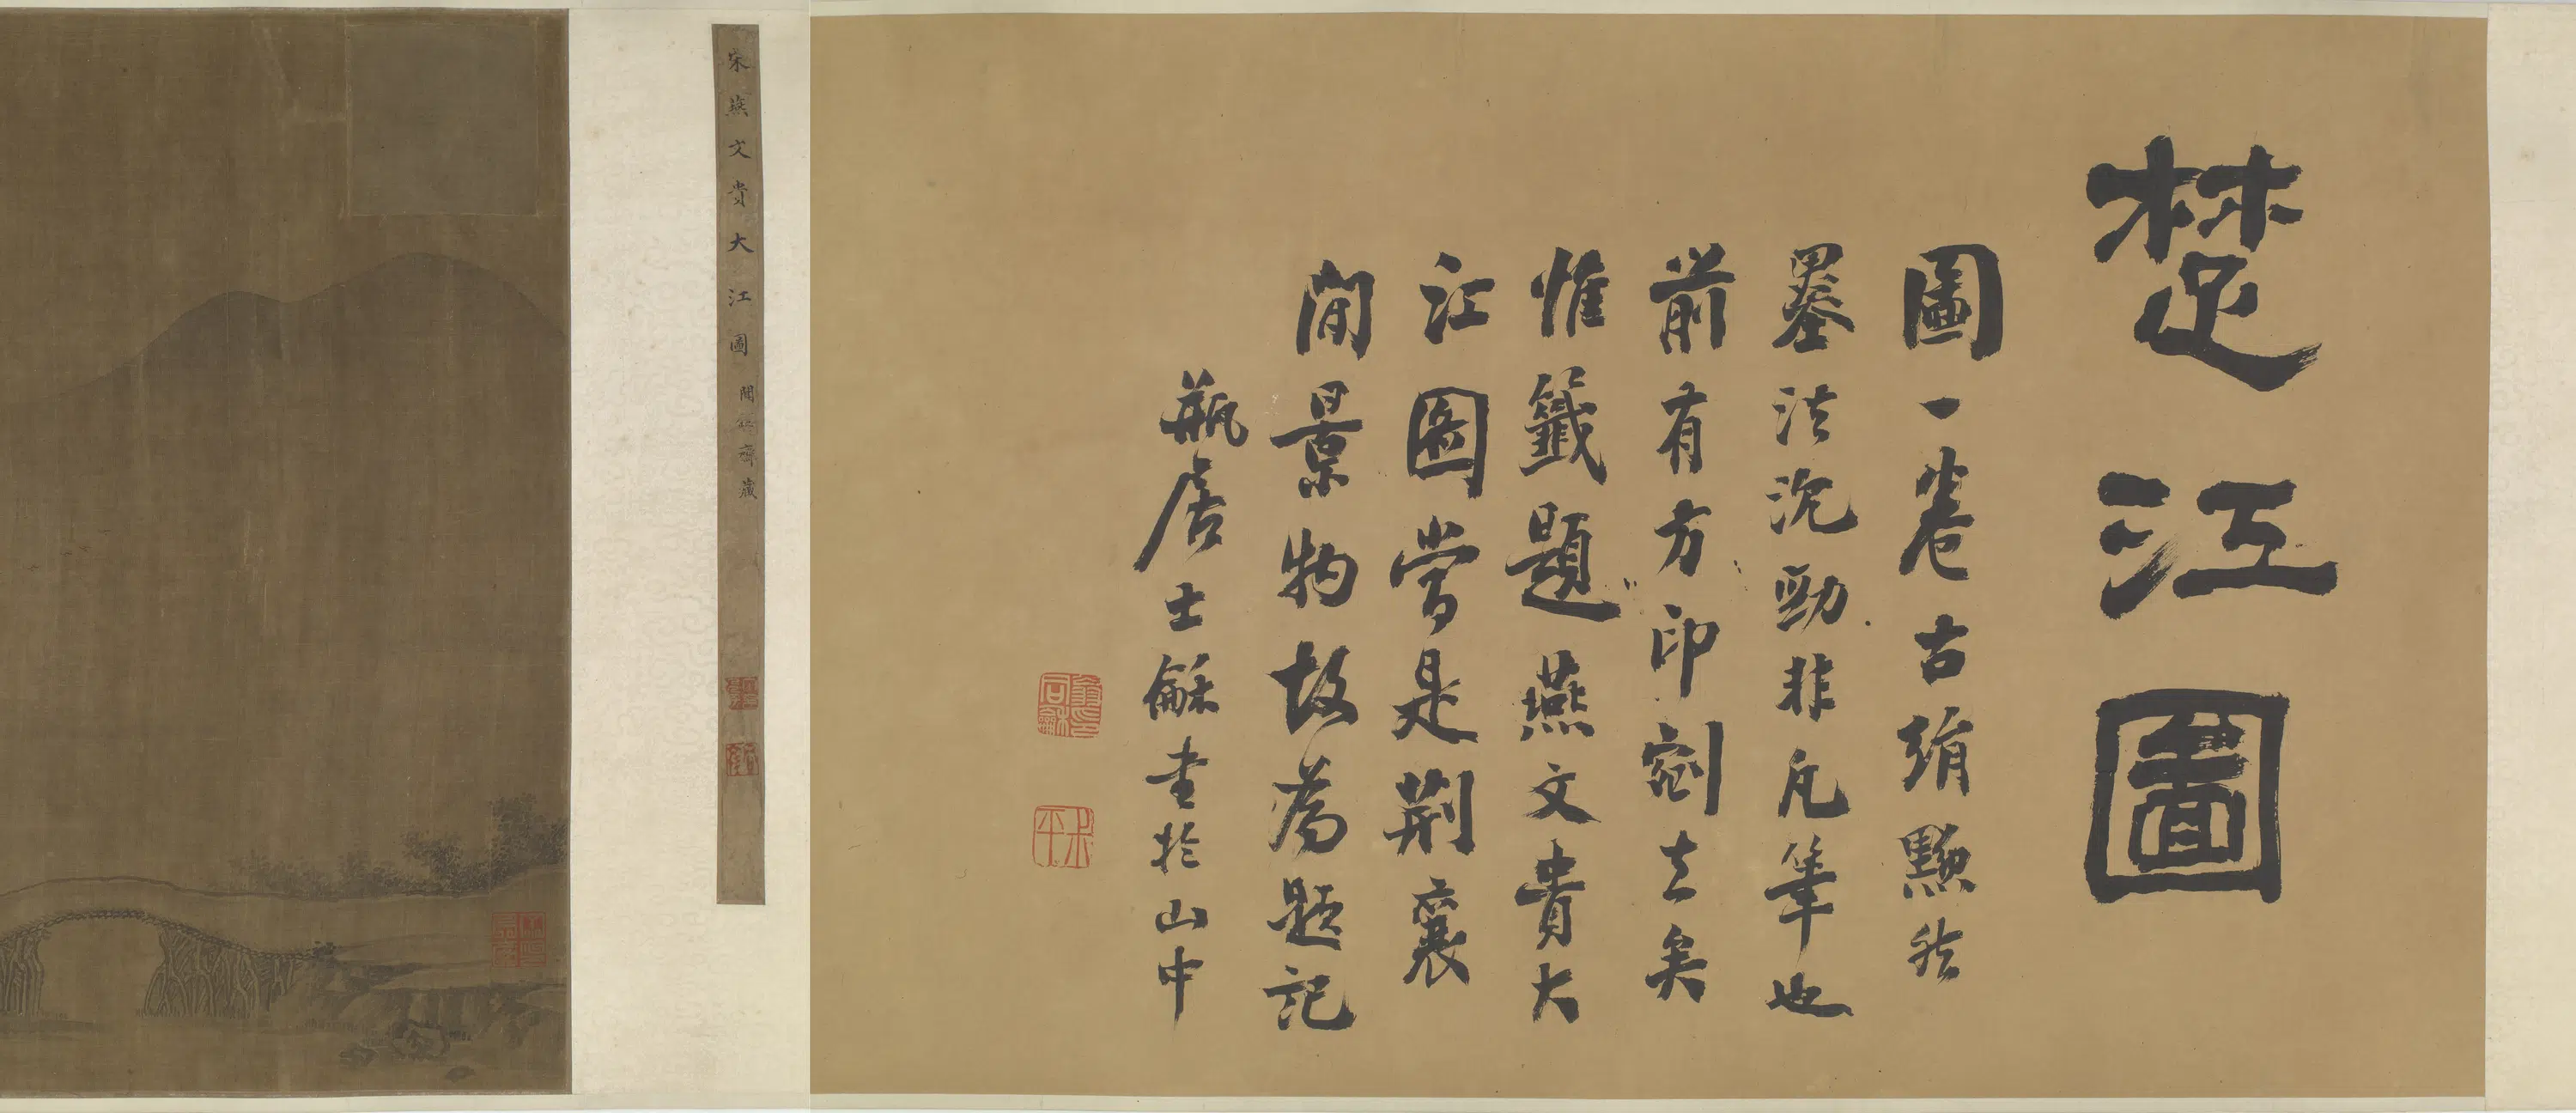 楚江圖
圖一卷古絹黝然
墨法沉勁非凡筆也
前有方印剜去矣
惟籤題燕文貴大
江圖當是荊襄
間景物故為題記
瓶居士龢書於山中
翁同龢印
叔平
宋燕文貴大江圖
齋藏